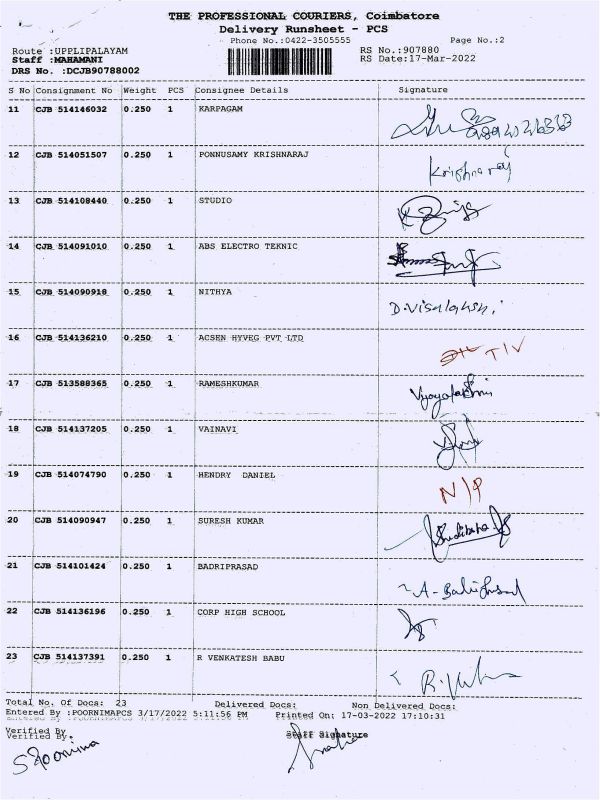 THE PROFESSIONAL COURIERS, Coimbatore
Delivery Runsheet - PCS
Phone No.:0422-3505555 Page No.:2
Route :UPPLIPALAYAM RS No.:907880
Staff :MAHAMANI RS Date:17-Mar-2022
DRS No. :DCJB90788002
S No Consignment No Weight PCS Consignee Details Signature
11 CJB 514146032 0.250 1 KARPAGAM
12 CJB 514051507 0.250 1 PONNUSAMY KRISHNARAJ Krishnaraj
13 CJB 514108440 0.250 1 STUDIO
14 CJB 514091010 0.250 1 ABS ELECTRO TEKNIC
15 CJB 514090918 0.250 1 NITHYA D.Visalakshi
16 CJB 514136210 0.250 1 ACSEN HYVEG PVT LTD T/V
17 CJB 513588365 0.250 1 RAMESHKUMAR Vijayalakshmi
18 CJB 514137205 0.250 1 VAINAVI
19 CJB 514074790 0.250 1 HENDRY DANIEL N/P
20 CJB 514090947 0.250 1 SURESH KUMAR
21 CJB 514101424 0.250 1 BADRIPRASAD
22 CJB 514136196 0.250 1 CORP HIGH SCHOOL
23 CJB 514137391 0.250 1 R VENKATESH BABU
Total No. Of Docs: 23 Delivered Docs: Non Delivered Docs:
Entered By :POORNIMAPCS 3/17/2022 5:11:56 PM Printed On: 17-03-2022 17:10:31
Verified By
Verified By: Staff Signature
S Poornima